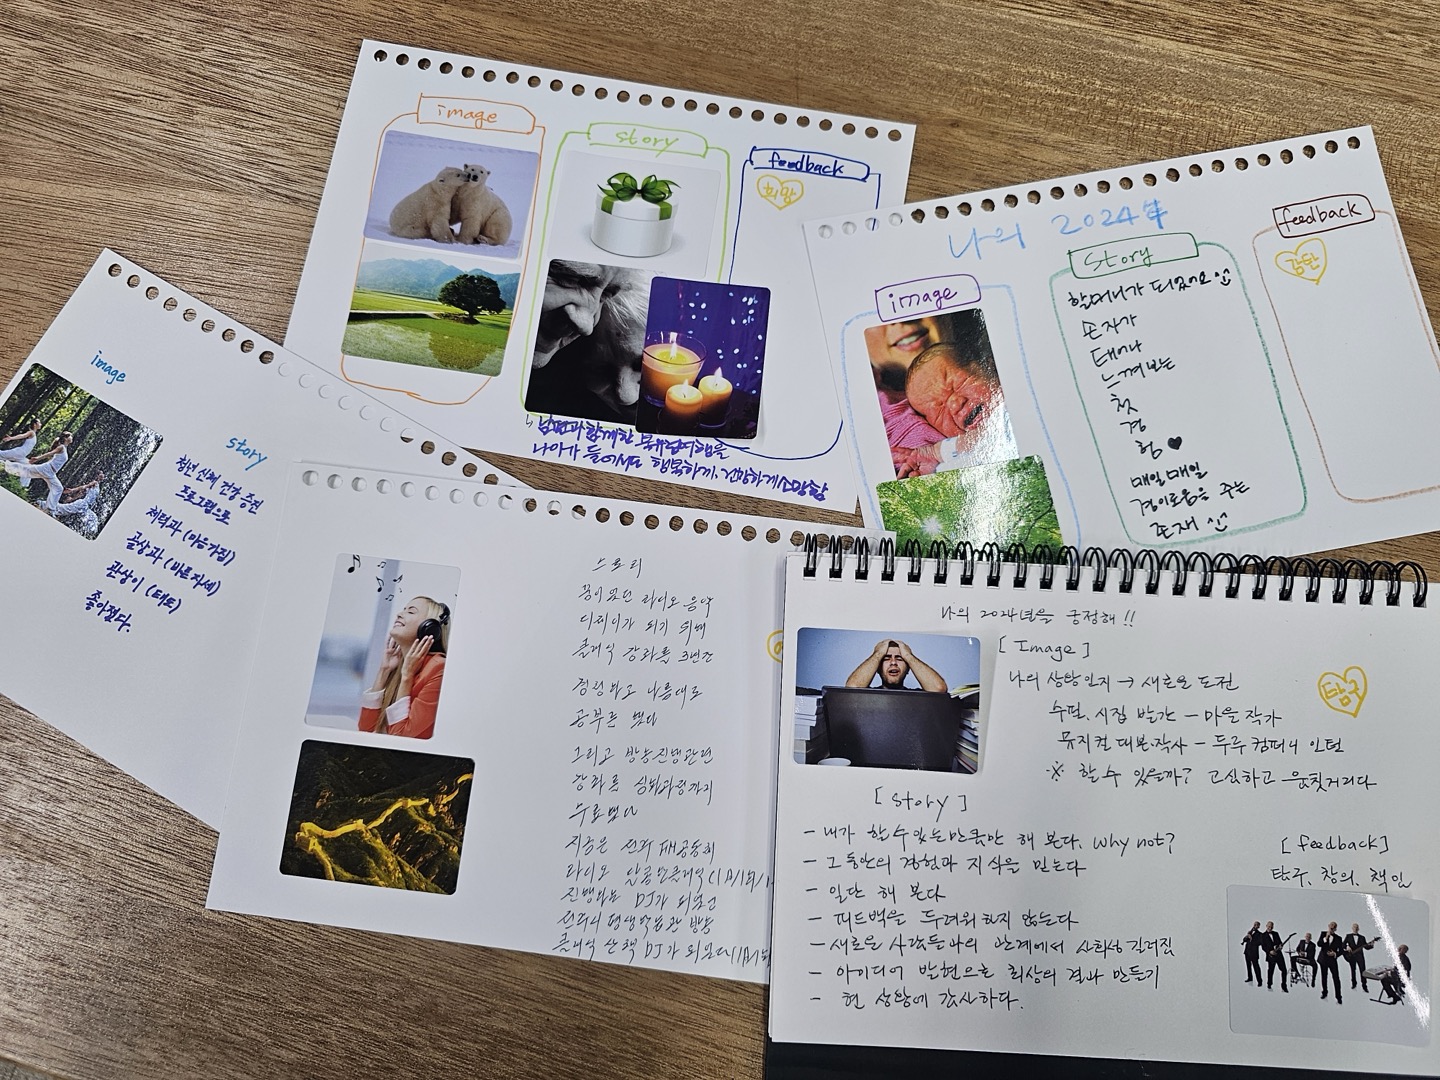 image
story
feedback
희망
남편과 함께한 북유럽여행을
나이가 들어서도 행복하게, 건강하게 소망함
나의 2024年
image
story
feedback
감탄
할머니가 되었어요
손자가
태어나
느껴보는
첫
경
험♥
매일매일
경이로움을 주는
존재
image
story
청년 신체 건강 증진
프로그램으로
체력과 (마음가짐)
골상과 (바른자세)
관상이 (태도)
좋아졌다.
스토리
꿈이었던 라디오 음악
디제이가 되기 위해
클래식 강좌를 3년간
경청하고 나름대로
공부를 했다
그리고 방송진행관련
강좌를 심화과정까지
수료했다
지금은 전주
라디오
진행하는 DJ가 되었고
방송
클래식 산책 DJ가 되었다
나의 2024년을 긍정해!!
[ Image ]
나의 상황인지 → 새로운 도전
수필, 시집 발간 - 마을 작가
뮤지컬 대본.작사 - 두루 컴퍼니 인턴
※ 할 수 있을까? 고심하고 움칫거리다
탐구
[ story ]
- 내가 할 수 있는만큼만 해 본다. why not?
- 그동안의 경험과 지식을 믿는다
- 일단 해 본다
- 피드백을 두려워하지 않는다
- 새로운 사람들과의 관계에서 사회성 길러짐
- 아이디어 발현으로 최상의 결과 만들기
- 현 상황에 감사하다.
[ feedback ]
탐구, 창의, 책임